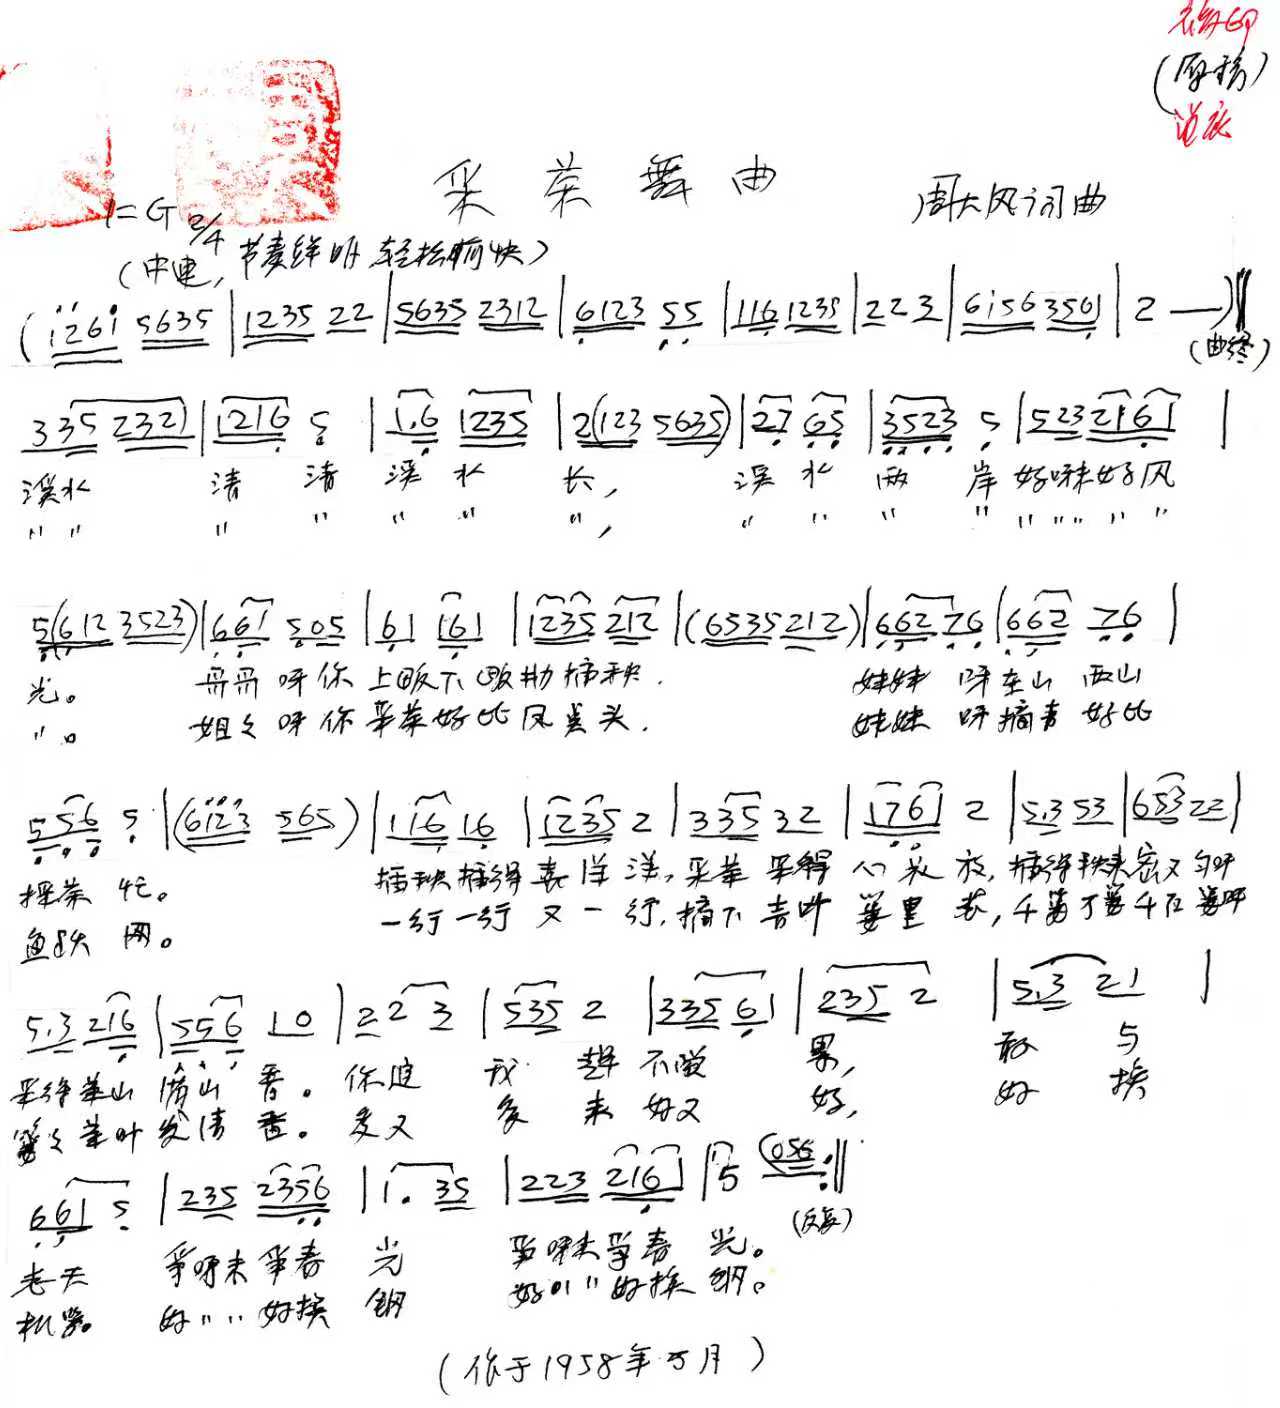 (原稿)
采茶舞曲
周大风词曲
1=G 2/4
(中速,节奏鲜明 轻松愉快)
(1261 5635 | 1235 22 | 5635 2312 | 6123 55 | 116 1235 | 22 3 | 6156 3561 | 2 — )‖
(曲终)
335 2321 | 1216 5 | 1.6 1235 | 2(123 5635) | 27 65 | 3523 5 | 523 2161 |
溪水 清 清 溪 水 长, 溪 水 两 岸 好呀未好风
" " " " " " ", " " " " " " " " "
5(612 3523) | 661 505 | 61 161 | 1235 212 | (6535 212) | 662 76 | 662 76 |
光。 哥哥 呀你 上畈下畈勤插秧. 妹妹 呀东山 西山
"。 姐々 呀你采茶好比凤点头. 妹妹 呀摘青 好比
556 5 | (6123 565) | 116 16 | 1235 2 | 335 32 | 1761 2 | 5.3 53 | 653 22 |
采茶 忙。 插秧插得喜洋洋,采茶采得心花放,插得秧来密又匀呀
鱼跃 网。 一行一行又一行,摘下青叶篓里装,千篓万篓千万篓呀
5.3 216 | 556 10 | 2 2 3 | 535 2 | 335 61 | 235 2 | 5.3 21 |
采得茶山满山香。你追 我 赶 不嫌 累, 敢 与
篓々茶叶发清香。多又 多 来 好又 好, 好 换
661 5 | 235 2356 | 1. 35 | 223 216 | 5 (056 :‖
(反复)
老天 争呀未争春 光 争呀未争春 光。
机器。 好 " " 好换 钢 好 " " 好换 钢。
(作于1958年5月)